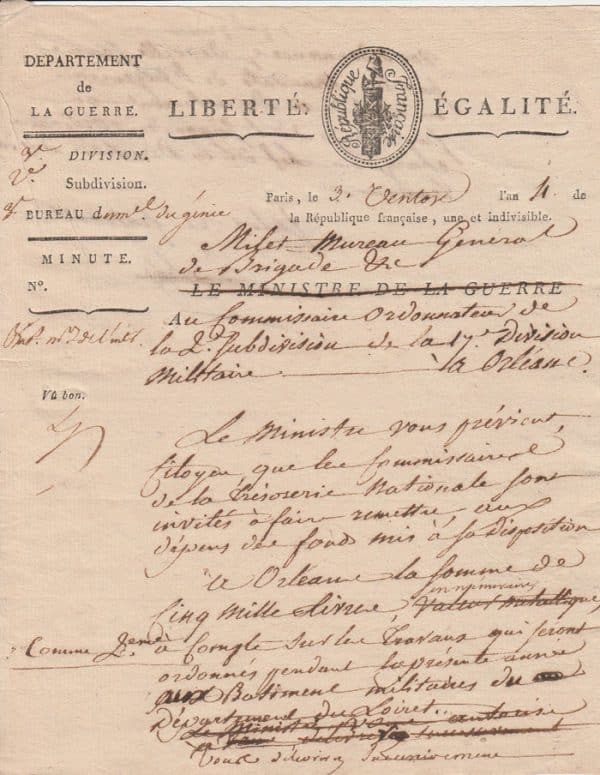 DEPARTEMENT
de
LA GUERRE.
LIBERTÉ.
République Française
ÉGALITÉ.
3e. DIVISION.
2e. Subdivision.
3e. BUREAU du génie
MINUTE.
N°.
Paris, le 3. Ventose l'an 4 de
la République française, une et indivisible.
Milet Mureau Général
de Brigade &c
LE MINISTRE DE LA GUERRE
Au Commissaire Ordonnateur de
la 2e. Subdivision de la 17e. Division
Militaire à Orléans.
Vu bon.
Le Ministre vous prévient,
Citoyen, que les Commissaires
de la Trésorerie Nationale sont
invités à faire remettre, aux
dépens des fonds mis à sa disposition
à Orléans la somme de
en numéraire
Cinq mille livres valeur métallique,
Comme 2eme à Compte sur les travaux qui seront
ordonnés pendant la présente année
aux Batiment militaires du
Département du Loiret.
Le Ministre vous autorise
successivement